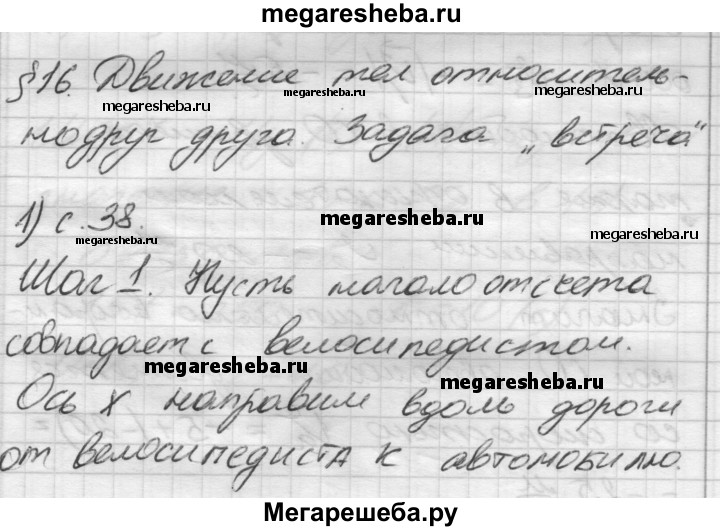 megaresheba.ru
§16. Движение тел относитель-
megaresheba.ru megaresheba.ru megaresheba.ru
но друг друга. Задача „встреча"
1) с. 38.
megaresheba.ru megaresheba.ru megaresheba.ru
Шаг 1. Пусть начало отсчета
совпадает с велосипедистом.
megaresheba.ru megaresheba.ru
Ось X направим вдоль дороги
от велосипедиста к автомобилю.
Мегарешеба.ру